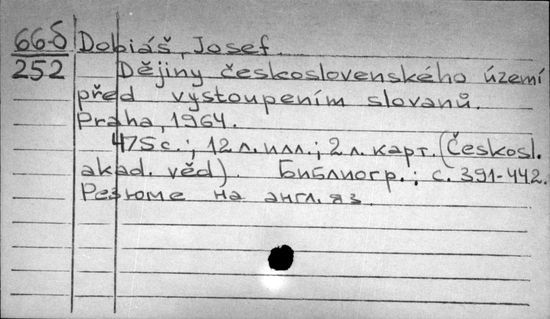 66-5 Dobiáš, Josef.
252 Dějiny československého území
před vystoupením slovanů.
Praha, 1964.
475 с.; 12 л. илл.; 2 л. карт. (Českosl.
akad. věd). Библиогр.: с. 391-442.
Резюме на англ. яз.